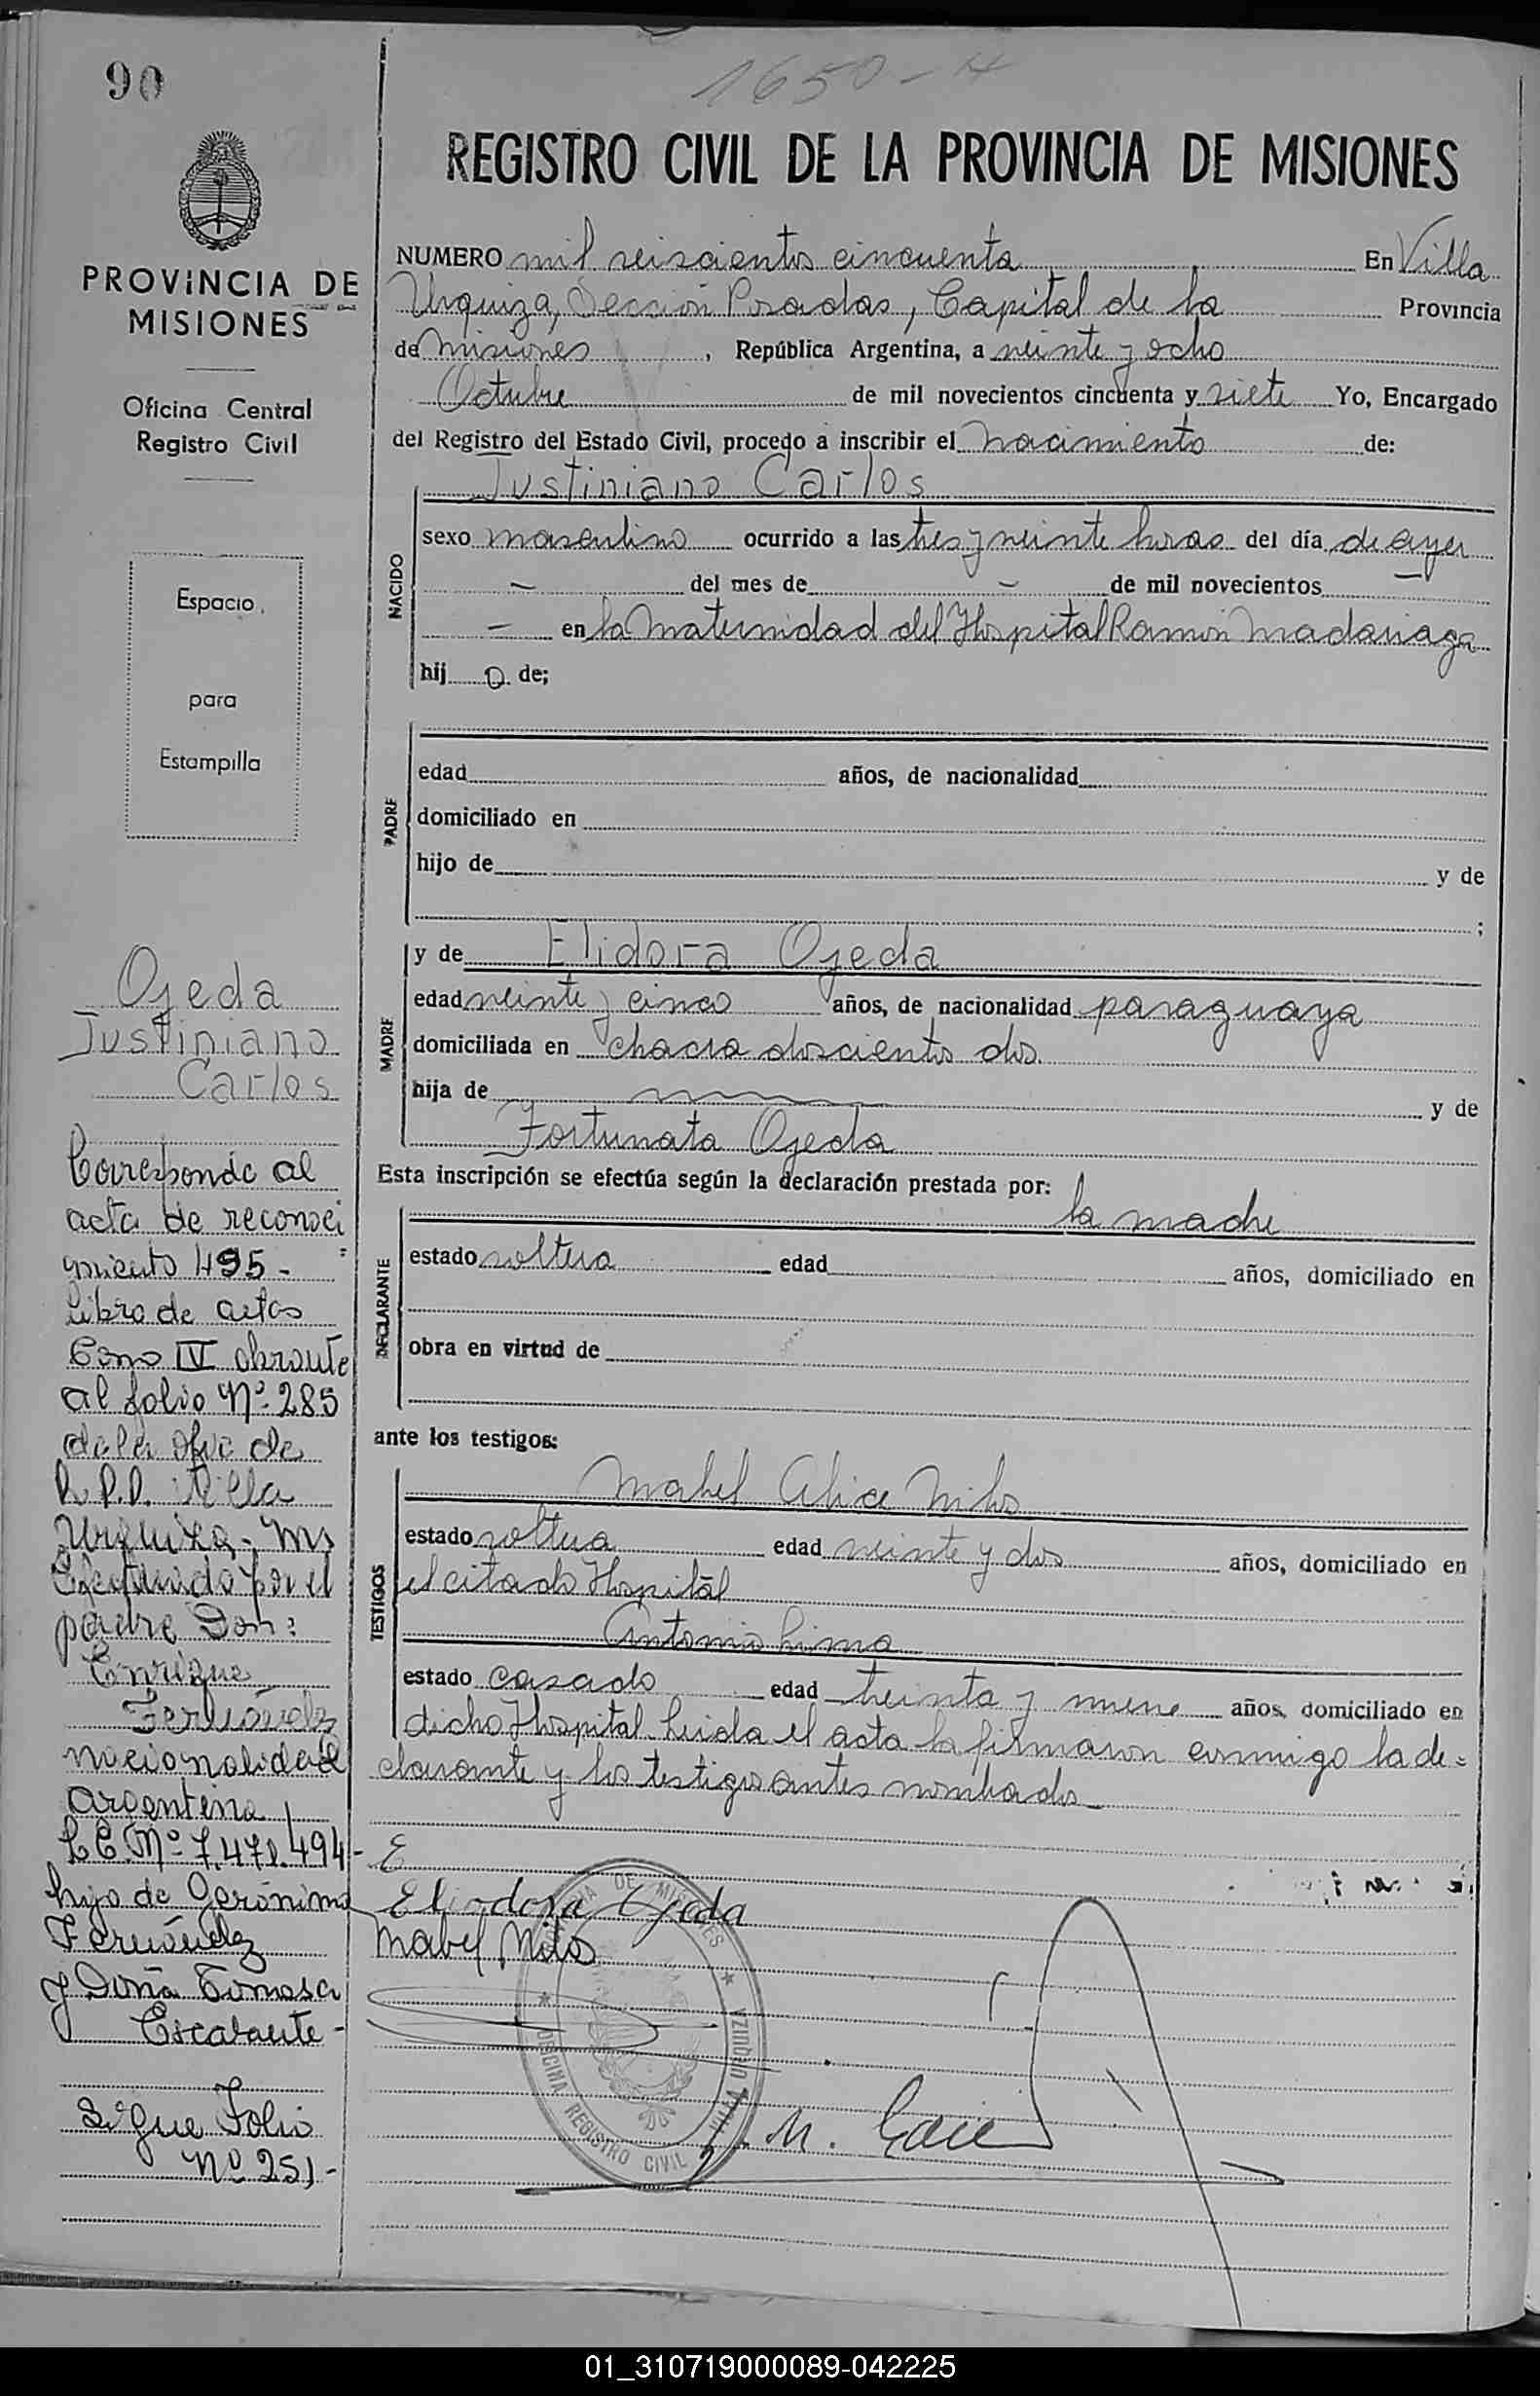 90
1650-H
PROVINCIA DE
MISIONES
Oficina Central
Registro Civil
Espacio
para
Estampilla
Ojeda
Justiniano
Carlos
Corresponde al
acta de reconoci
miento 495-
libro de actas
Tomo IV obrante
al folio Nº 285
de la ofic de
R.P.P. Villa
Urquiza-Ms
Efectuado por el
padre Don:
Enrique
Fernández
nacionalidad
argentina
L E. Nº 7.471.494-
hijo de Gerónimo
Fernández
y Doña Tomasa
Escalante-
Sigue Folio
Nº 251-
REGISTRO CIVIL DE LA PROVINCIA DE MISIONES
NUMERO mil seiscientos cincuenta En Villa
Urquiza, Sección Posadas, Capital de la Provincia
de Misiones, República Argentina, a veinte y ocho
Octubre de mil novecientos cincuenta y siete Yo, Encargado
del Registro del Estado Civil, procedo a inscribir el nacimiento de:
Justiniano Carlos
NACIDO
sexo masculino ocurrido a las tres y veinte horas del día de ayer
- del mes de - de mil novecientos -
- en la Maternidad del Hospital Ramón Madariaga
hij o de;
PADRE
edad años, de nacionalidad
domiciliado en
hijo de y de
;
MADRE
y de Elidora Ojeda
edad veinte y cinco años, de nacionalidad paraguaya
domiciliada en chacra doscientos dos.
hija de y de
Fortunata Ojeda
Esta inscripción se efectúa según la declaración prestada por:
la madre
DECLARANTE
estado soltera edad años, domiciliado en
obra en virtud de
ante los testigos:
TESTIGOS
Mabel Alice Milos
estado soltera edad veinte y dos años, domiciliado en
el citado Hospital
Antonio Lima
estado casado edad treinta y nueve años, domiciliado en
dicho Hospital. Leida el acta la firmaron conmigo la de=
clarante y los testigos antes nombrados
E
Eliodora Ojeda
Mabel Milos
OFICINA REGISTRO CIVIL VILLA URQUIZA
DE MISIONES
01_310719000089-042225